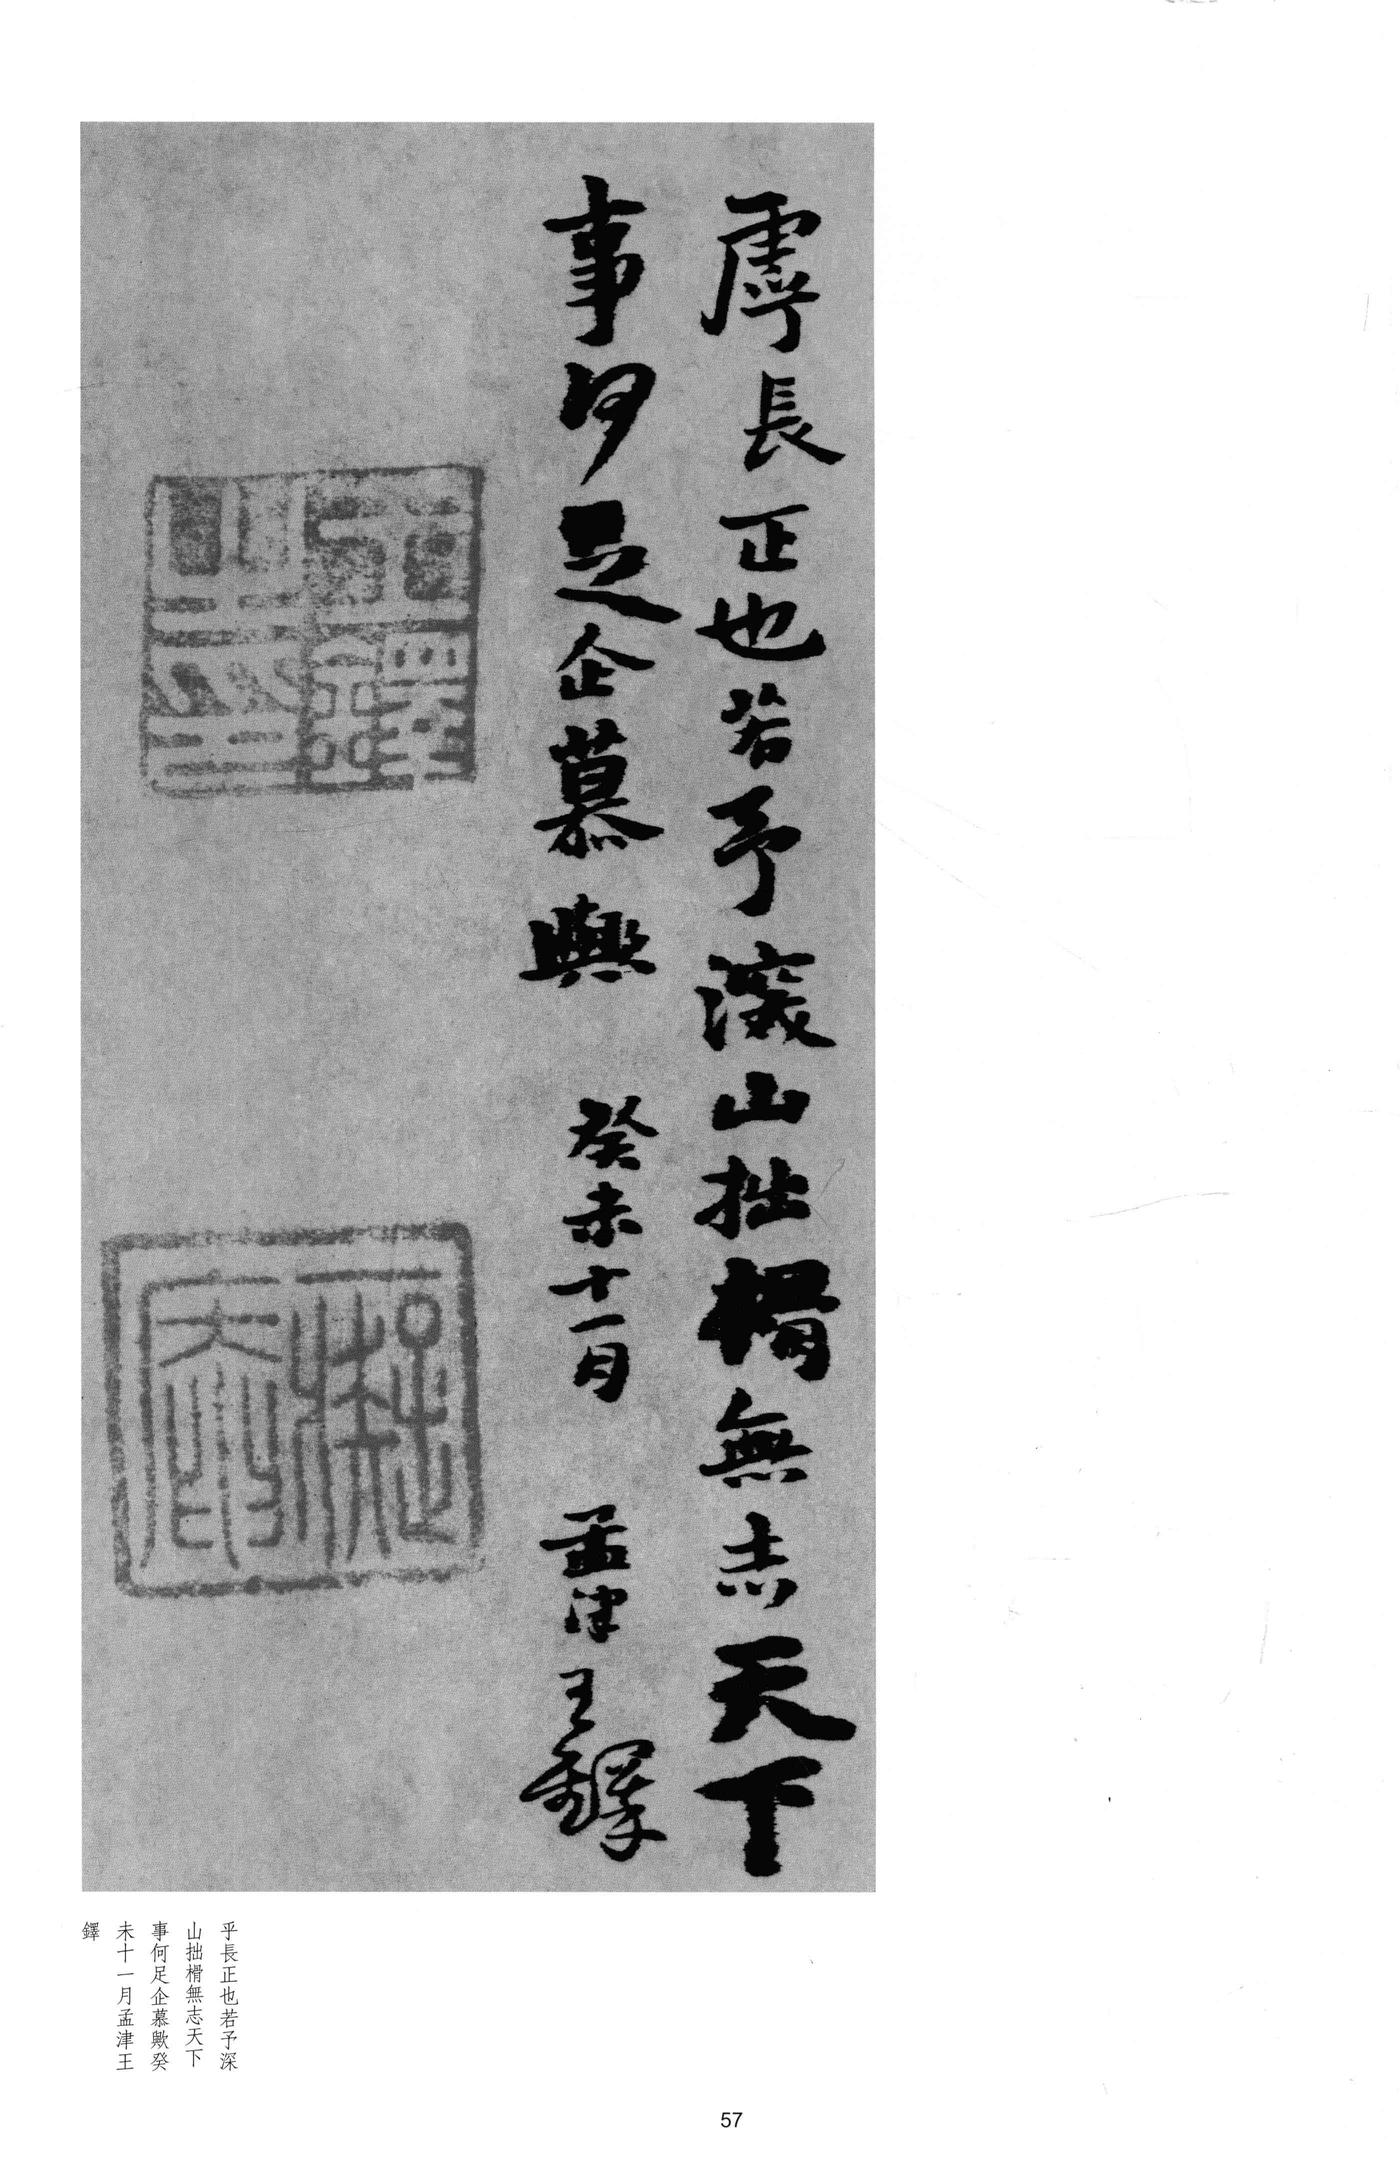 虖長正也若予深山拙榾無志天下
事何足企慕與 癸未十一月 孟津王鐸
王鐸
之印
乎長正也若予深
山拙榾無志天下
事何足企慕歟癸
未十一月孟津王
鐸
57